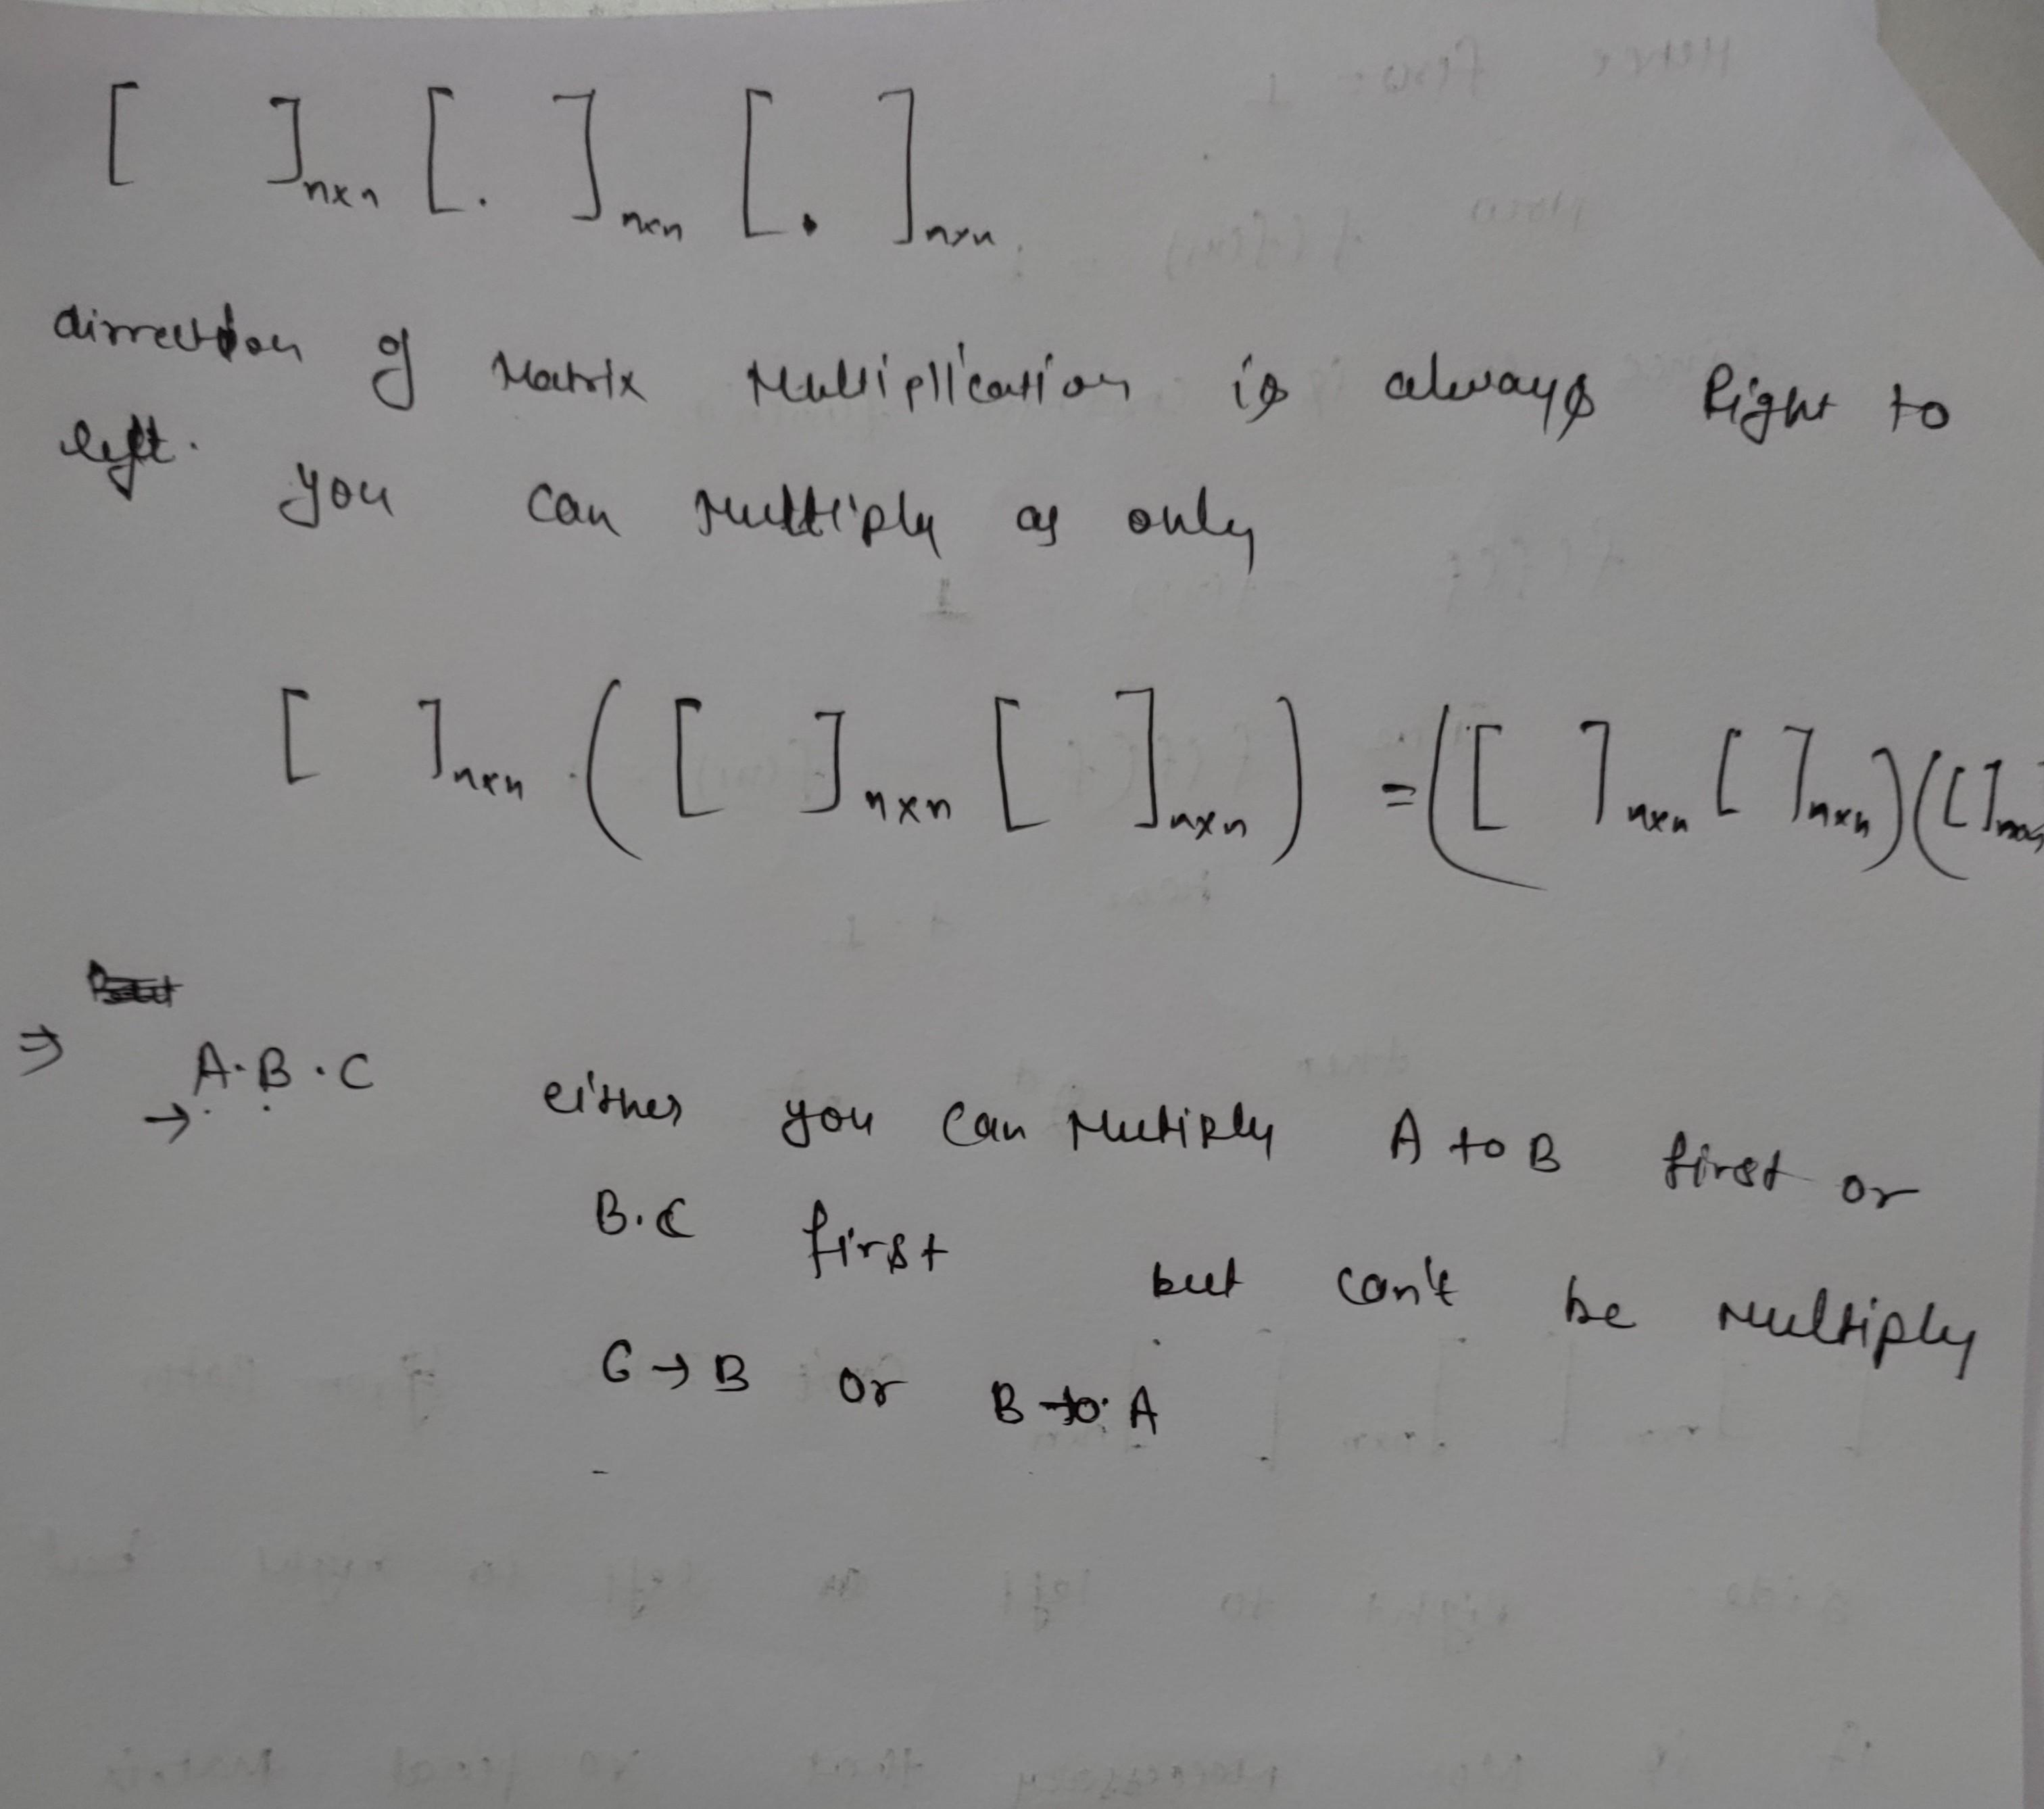 [ ]nxn [. ]nxn [. ]nxn
dirrection of Matrix Multipllication is always Right to
left. you can multiply as only
[ ]nxn . ( [ ]nxn [ ]nxn ) = ( [ ]nxn [ ]nxn ) ( [ ]nxn
⇒ A·B·C either you can Multiply A to B first or
→
B.C first but can't be multiply
C → B or B to A